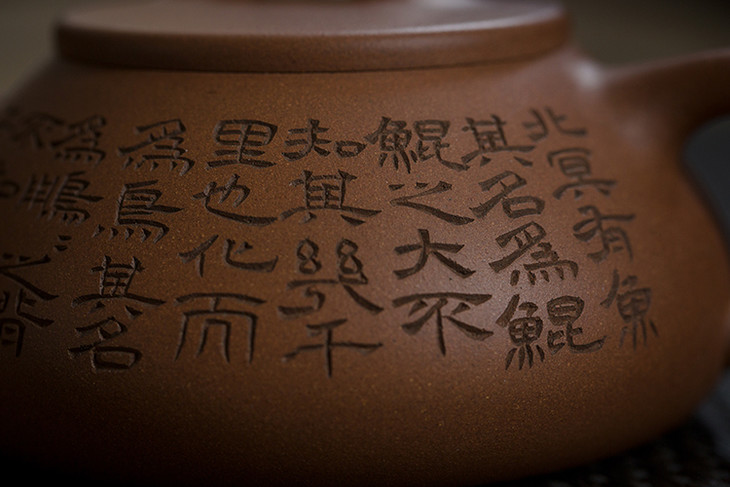 北冥有魚
其名為鯤
鯤之大不
知其幾千
里也化而
為鳥其名
為鵬